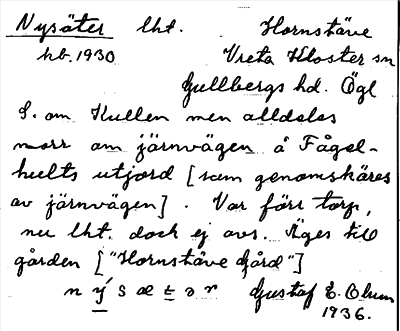 Nysäter lht. Hornstäve
kb. 1930 Vreta Kloster sn
Gullbergs hd. Ögl
S. om Kullen men alldeles
norr om järnvägen å Fågel-
hults utjord [som genomskäres
av järnvägen]. Var förr torp,
nu lht. dock ej avs. Äges till
gården ["Hornstäve Gård"]
n ý s æ t ə r Gustaf E. Olson
1936.